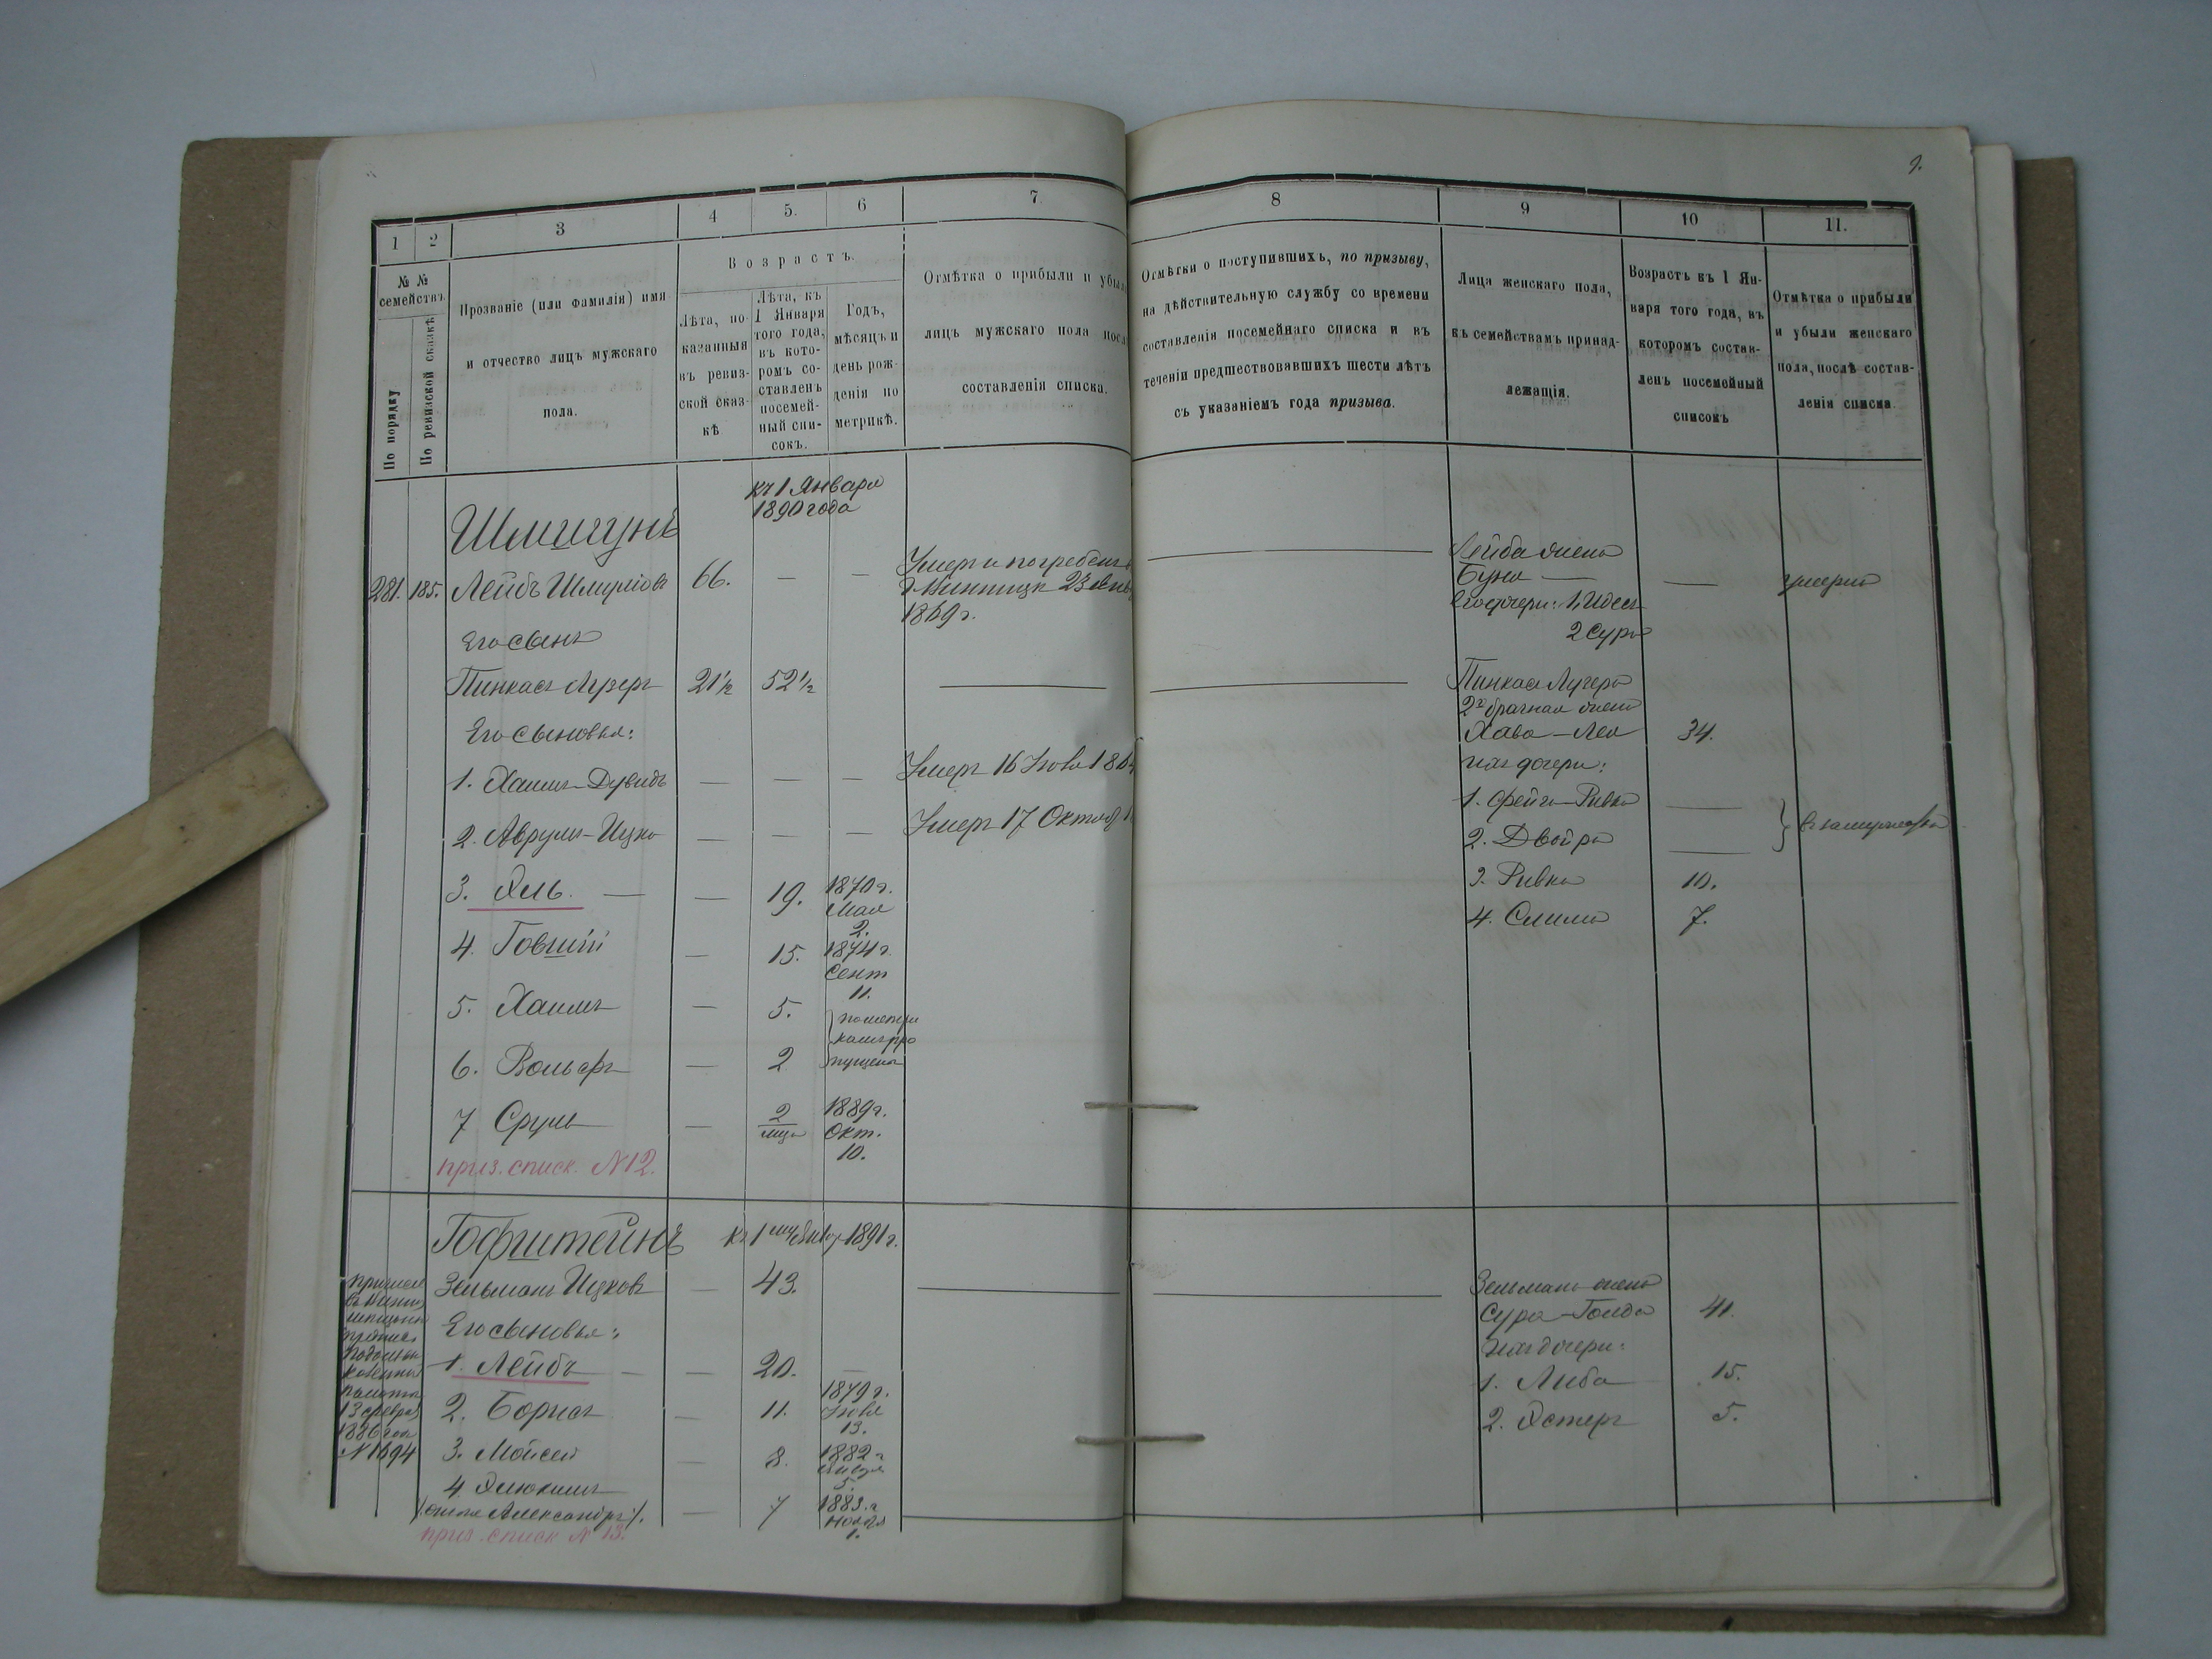 9.
1
2
3
4
5.
6
7
8
9
10
11.
№ №
семействъ
По порядку
По ревизской сказкѣ
Прозваніе (или фамилія) имя
и отчество лицъ мужскаго
пола.
Возрастъ.
Лѣта, по-
казанныя
въ ревиз-
ской сказ-
кѣ
Лѣта, къ
1 Января
того года,
въ кото-
ромъ со-
ставленъ
посемей-
ный спи-
сокъ.
Годъ,
мѣсяцъ и
день рож-
денія по
метрикѣ.
Отмѣтка о прибыли и убыли
лицъ мужскаго пола послѣ
составленія списка.
Отмѣтки о поступившихъ, по призыву,
на дѣйствительную службу со времени
составленія посемейнаго списка и въ
теченіи предшествовавшихъ шести лѣтъ
съ указаніемъ года призыва.
Лица женскаго пола,
къ семействамъ принад-
лежащія.
Возрастъ къ 1 Ян-
варя того года, въ
которомъ состав-
ленъ посемейный
списокъ
Отмѣтка о прибыли
и убыли женскаго
пола, послѣ состав-
ленія списка.
къ 1 Января
1890 года
281. 185. Лейбъ Шмулiовъ 66. — —
Умеръ и погребенъ в
г. Винницѣ 23
1869 г.
Лейба жена
Буня — — умерла
его дочери: 1, Идесъ
2 Сура
Его сынъ
Пинкасъ Лузеръ 21½ 52½
Пинкаса Лузера
2х брачная жена
Хава-Лея 34.
Его сыновья:
ихъ дочери:
1. Хаимъ-Дувидъ — — — Умеръ 16
1. Фейга-Ривка —
2. Аврумъ-Ицко — — — Умеръ 17 Октяб
2. Двойра —
въ замужествѣ
3. Эль. — — 19. 1870 г.
Мая
2.
3. Ривка 10.
4. Говшiй — 15. 1874 г.
Сент
11.
4. Слима 7.
5. Хаимъ — 5.
6. Вольфъ — 2
по метри
камъ про
пущены
7 Сруль — 2
мца
1889 г.
Окт.
10.
приз. списк. N 12.
Гофштейнъ
1891 г.
Зельманъ Ицковъ — 43.
Зельмана жена
Сура-Голда 41.
Его сыновья:
ихъ дочери:
1. Лейбъ — — 20. —
1. Либа 15.
2. Борисъ — 11. 1879 г.
Iюля
13.
2. Эстеръ 5.
3. Мойсей — 8. 1882 г.
5.
4.
(онъ же Александръ). — 7 1883 г.
Ноября
1.
приз. списк N 13.
казенной
палаты
13 февраля
1886 года
N 1694